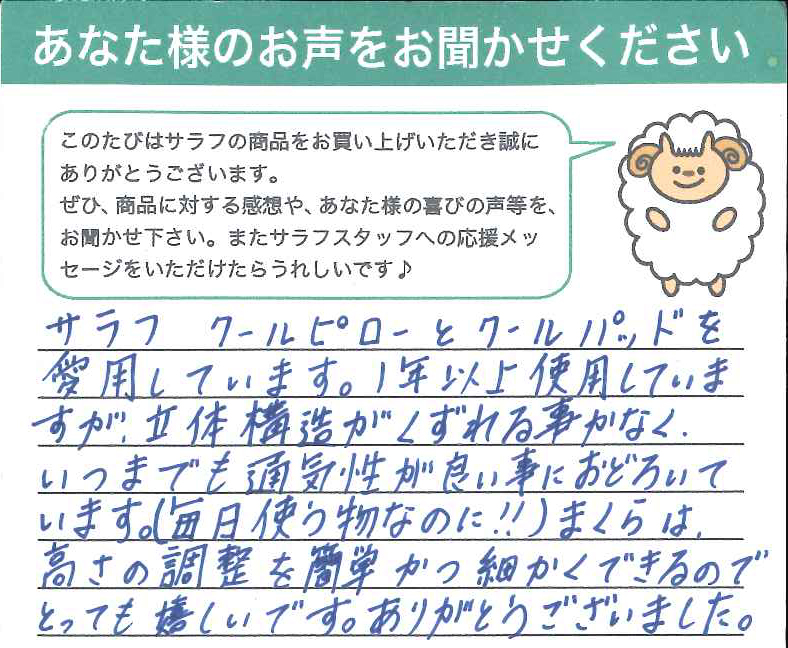 あなた様のお声をお聞かせください。
このたびはサラフの商品をお買い上げいただき誠に
ありがとうございます。
ぜひ、商品に対する感想や、あなた様の喜びの声等を、
お聞かせ下さい。またサラフスタッフへの応援メッ
セージをいただけたらうれしいです♪
サラフ クールピローとクールパッドを
愛用しています。1年以上使用していま
すが、立体構造がくずれる事がなく、
いつまでも通気性が良い事におどろいて
います。(毎日使う物なのに!!)まくらは、
高さの調整を簡単かつ細かくできるので
とっても嬉しいです。ありがとうございました。